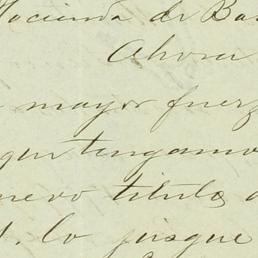 Hacienda de Ba
Ahora
mayor fuerz
que tengamos
nuevo titulo
lo jusque